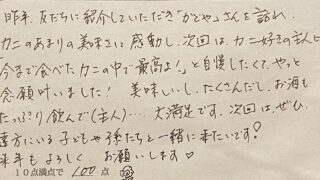 昨年、友だちに紹介していただき「かどや」さんを訪れ、
カニのあまりの美味さに感動し、次回は、カニ好きの主人に
今まで食べたカニの中で最高よ!」と自慢したくて、やっと
念願叶いました! 美味しいし、たくさんだし、お酒も
たっぷり飲んで(主人)…大満足です。次回は、ぜひ、
遠方にいる子どもや孫たちと一緒に来たいです!
来年もよろしくお願いします♡
10点満点で 100 点